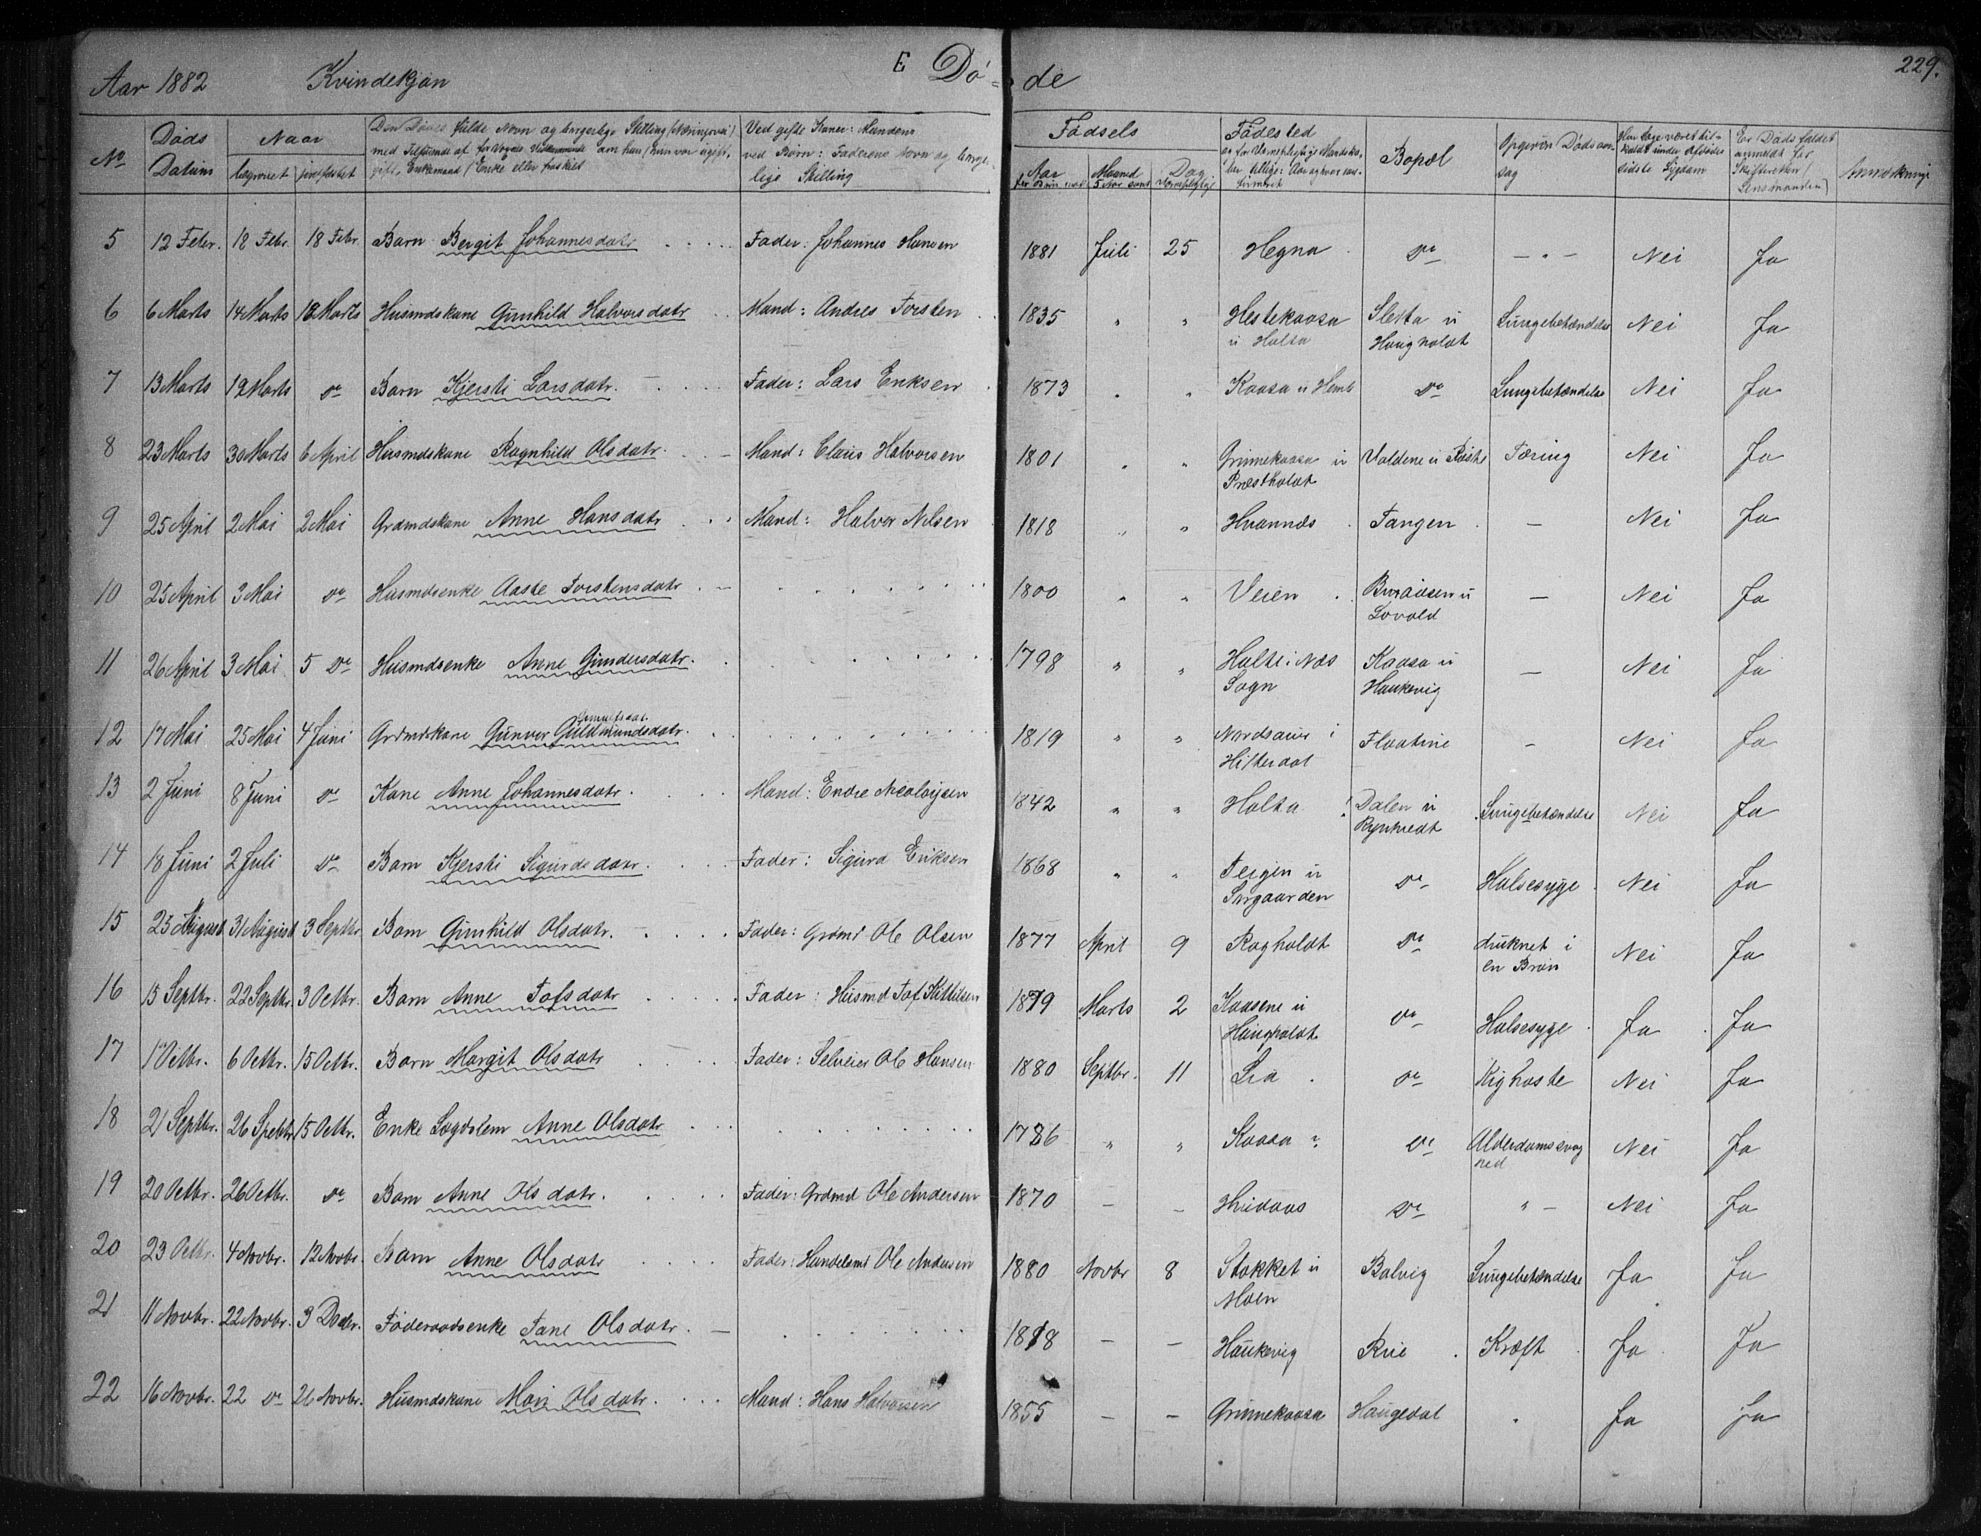 Aar 1882 Kvindekjøn E Dö- de 229.
No Døds Datum Naar begravet jordfæstet
Den Dødes fulde Navn og borgerlige Stilling (Næringsvei)
Ved gifte Koner: Mandens
ved Børn: Faderens Navn og borger-
lige Stilling
Fødsels Aar Maaned Dag Fødested Bopæl Opgiven Dødsaarsag
Er Dødsfaldet anmeldt for Skifteretten (Lensmanden) Anmærkninger
5 12 Febr. 18 Febr. 18 Febr. Barn Bergit Johannesdatr Fader: Johannes Hansen 1881 Juli 25 Hegna do — " — Nei Ja
6 6 Marts 14 Marts 18 Marts Husmdskone Gunhild Halvorsdatr Mand: Andres Torsten 1835 " " Hestekaasa u Holta Sletta u Haugholdt Lungebetændelse Nei Ja
7 13 Marts 19 Marts do Barn Kjersti Larsdatr. Fader: Lars Eriksen 1873 " " Kaasa u Hemb do Lungebetændelse Nei Ja
8 23 Marts 30 Marts 6 April Husmdskone Ragnhild Olsdatr. Mand: Claus Halvorsen 1801 " " Grinnekaasa u Præstholdt Valdene u Tæring Nei Ja
9 25 April 2 Mai 2 Mai Grdmdskone Anne Hansdatr Mand: Halvor Nilsen 1818 " " Hvannæs Tangen — Nei Ja
10 25 April 3 Mai do Husmdsenke Aaste Torstensdatr 1800 " " Veien u Lovold — Nei Ja
11 26 April 3 Mai 5 do Husmdsenke Anne Gundersdatr. 1798 " " Holte i Næs Sogn Kaasa u Haukevig — Nei Ja
12 17 Mai 25 Mai 4 Juni Grdmdskone Gunver Guldmundsdatr. 1819 " " i Hitterdal Flaatine — Nei Ja
13 2 Juni 8 Juni do Kone Anne Johannesdatr. Mand: Endre Nicolaysen 1842 " " Holta Dalen u Lungebetændelse Nei Ja
14 18 Juni 2 Juli do Barn Kjersti Sigurdsdatr. Fader: Sigurd Eriksen 1868 " " Teigen u do Halsesyge Nei Ja
15 25 August 31 August 3 Septbr. Barn Gunhild Olsdatr. Fader: Grdmd Ole Olsen 1877 April 9 Rogholdt do druknet i en Brøn Nei Ja
16 15 Septbr. 22 Septbr. 3 Octbr. Barn Anne Tofsdatr Fader: Husmd Tof Kittilsen 1879 Marts 2 Kaasene u Haugholdt do Halsesyge Ja Ja
17 1 Octbr. 6 Octbr. 15 Octbr. Barn Margit Olsdatr Fader: Selveier Ole Hansen 1880 Septbr. 11 Lia do Kighoste Nei Ja
18 21 Septbr. 26 Spebtr 15 Octbr. Enke Lægdslem Anne Olsdatr 1786 " " Kaasa do Alderdomssvaghed Nei Ja
19 20 Octbr. 26 Octbr. do Barn Anne Olsdatr. Fader: Grdmd Ole Andersen 1870 — — do " — Nei Ja
20 23 Octbr. 4 Novbr. 12 Novbr. Barn Anne Olsdatr Fader: Handelsmd Ole Andersen 1880 Novbr 8 Stokket u Moen Bolvig Lungebetændelse Ja Ja
21 11 Novbr. 22 Novbr. 3 Decbr. Føderaadsenke Tone Olsdatr. 1818 — — Haukevig Rue Kræft Ja Ja
22 16 Novbr. 22 do 26 Novbr. Husmdskone Mari Olsdatr. Mand: Hans Halvorsen 1855 — — Grinnekaasa Haugedal " Ja Ja